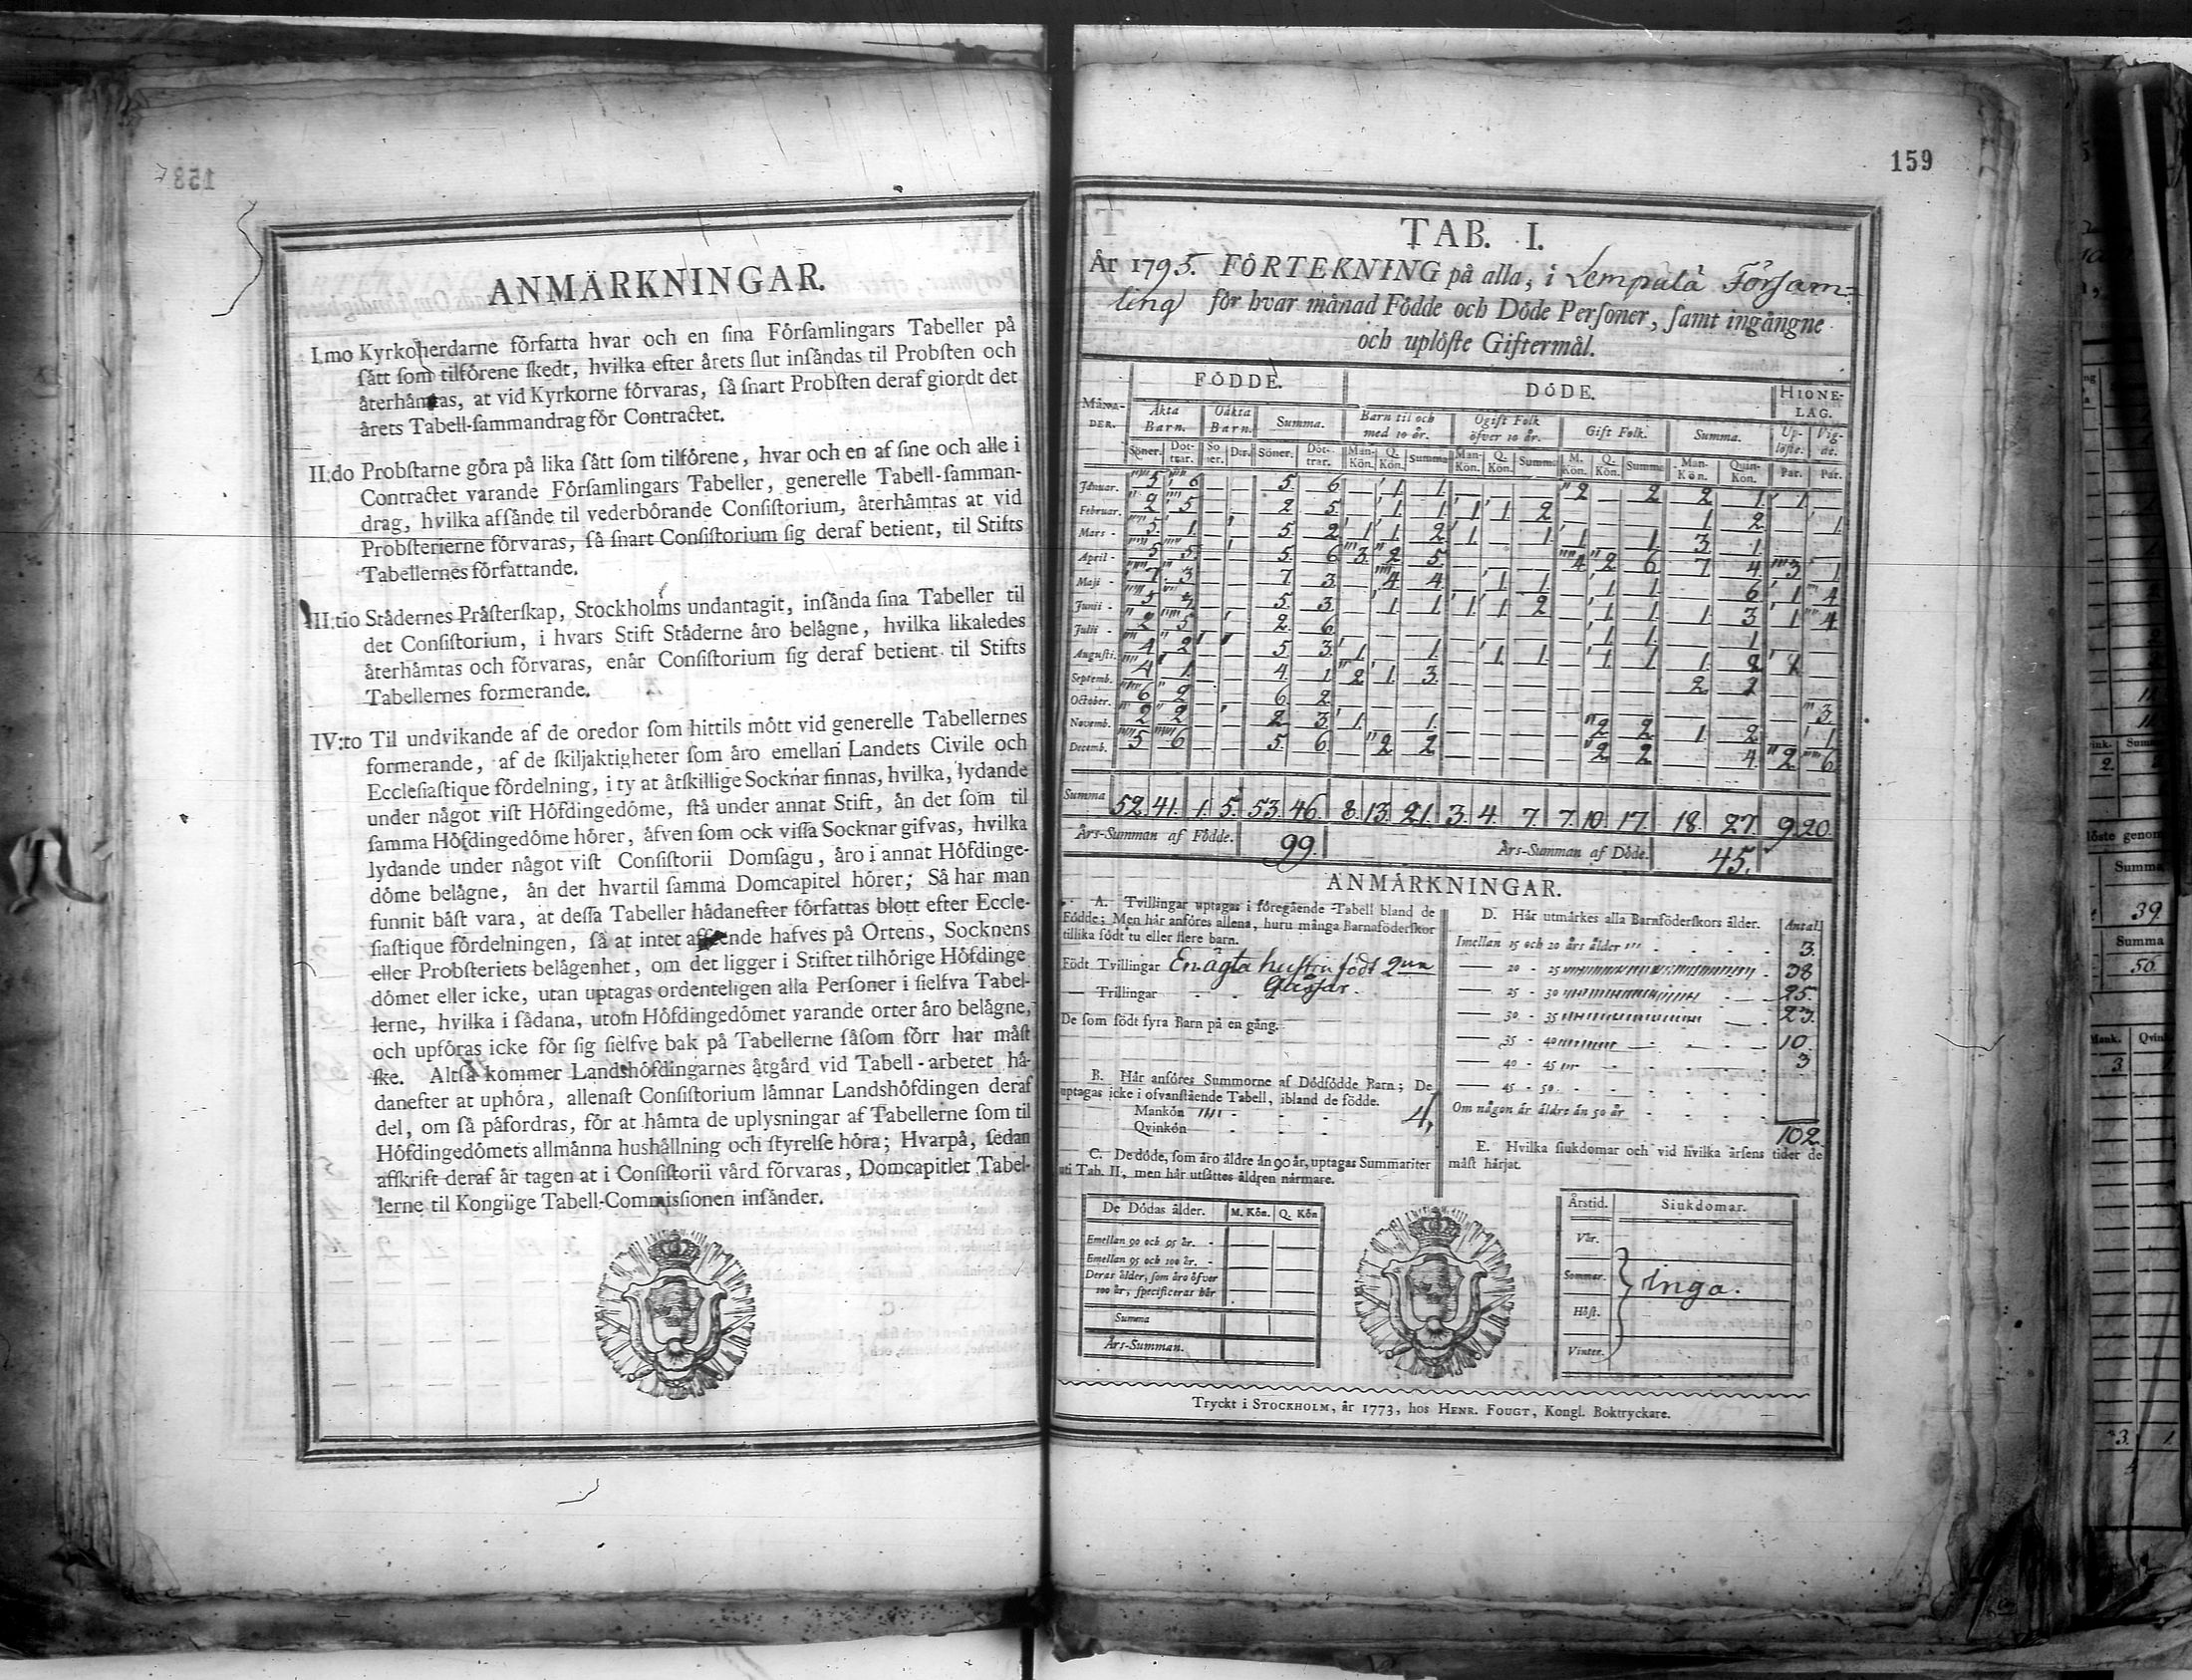 158
ANMÄRKNINGAR.
I.mo Kyrkoherdarne författa hvar och en sina Församlingars Tabeller på
sätt som tilförene skedt, hvilka efter årets slut insändas til Probsten och
återhämtas, at vid Kyrkorne förvaras, så snart Probsten deraf giordt det
årets Tabell-sammandrag för Contractet.
II:do Probstarne göra på lika sätt som tilförene, hvar och en af sine och alle i
Contractet varande Församlingars Tabeller, generelle Tabell-samman-
drag, hvilka afsände til vederbörande Consistorium, återhämtas at vid
Probsterierne förvaras, så snart Consistorium sig deraf betient, til Stifts
Tabellernes författande.
III:tio Städernes Prästerskap, Stockholms undantagit, insända sina Tabeller til
det Consistorium, i hvars Stift Städerne äro belägne, hvilka likaledes
återhämtas och förvaras, enär Consistorium sig deraf betient til Stifts
Tabellernes formerande.
IV:to Til undvikande af de oredor som hittils mött vid generelle Tabellernes
formerande, af de skiljaktigheter som äro emellan Landets Civile och
Ecclesiastique fördelning, i ty at åtskillige Socknar finnas, hvilka, lydande
under något vist Höfdingedöme, stå under annat Stift, än det som til
samma Höfdingedöme hörer, äfven som ock vissa Socknar gifvas, hvilka
lydande under något vist Consistorii Domsagu, äro i annat Höfdinge-
döme belägne, än det hvartil samma Domcapitel hörer; Så har man
funnit bäst vara, at dessa Tabeller hädanefter författas blott efter Eccle-
siastique fördelningen, så at intet afseende hafves på Ortens, Socknens
eller Probsteriets belägenhet, om det ligger i Stiftet tilhörige Höfdinge
dömet eller icke, utan uptagas ordenteligen alla Personer i sielfva Tabel-
lerne, hvilka i sådana, utom Höfdingedömet varande orter äro belägne,
och upföras icke för sig sielfve bak på Tabellerne såsom förr har måst
ske. Altså kommer Landshöfdingarnes åtgärd vid Tabell-arbetet hä-
danefter at uphöra, allenast Consistorium lämnar Landshöfdingen deraf
del, om så påfordras, för at hämta de uplysningar af Tabellerne som til
Höfdingedömets allmänna hushållning och styrelse höra; Hvarpå, sedan
afskrift deraf är tagen at i Consistorii vård förvaras, Domcapitlet Tabel-
lerne til Konglige Tabell-Commissionen insänder.
159
TAB. I.
År 1795. FÖRTEKNING på alla, i Lempälä Försam=
ling för hvar månad Födde och Döde Personer, samt ingångne
och uplöste Giftermål.
FÖDDE. DÖDE. HIONE-LAG.
MÅNA-DER. Äkta Barn. Oäkta Barn. Summa. Barn til och med 10 år. Ogift Folk öfver 10 år. Gift Folk. Summa. Up-löste. Vig-de.
Söner. Döt-trar. So-ner. Dr. Söner. Döt-trar. Man-Kön. Q. Kön. Summa Man-Kön. Q. Kön. Summa M. Kön. Q. Kön. Summa Man-Kön. Quin-Kön. Par. Par.
Januar. 5 6 — — 5. 6 — 1 1. — — — 2 — 2 2 1. 1
Februar. 2 5 — — 2 5. — 1 1. 1 1 2 — — — 1 2 — 1.
Mars - 5 1. — 5. 2 1 1. 2 1. — 1 1 — 1 3. 1
April - 5 5. — 5 6 3. 2 5. — — — 4 2 6 7 4. 3 1.
Maji - 7. 3 — — 7. 3. — 4 4 — 1 1. — 1 1. — 6 1 4
Junii - 5. 3. 1 1. 1 1 2 — 1 1. 1 3 1 4
Julii - 2 5 2. 6
Augusti. 4 2 5 3.
Septemb. 4 1. — — 4. 1 2 1. 3.
October. 6 2 — — 6 2 3
Novemb. 2 2 — 2 3 1. — 1. — — — — 2 2 1. 2 1
Decemb. 5 6 — — 5. 6 — 2 2 — — — — 2 2 — 4. 2 6
Summa 52. 41. 1. 5. 53. 46. 8. 13. 21. 3. 4. 7. 7. 10. 17. 18. 27. 9. 20.
Års-Summan af Födde. 99. Års-Summan af Döde. 45.
ANMÄRKNINGAR.
A. Tvillingar uptagas i föregående Tabell bland de
Födde; Men här anföres allena, huru många Barnaföderskor
tillika födt tu eller flere barn.
Födt Tvillingar En ägta hustru födt 2ne
— Trillingar - - gåssar.
De som födt fyra Barn på en gång.
B. Här anföres Summorne af Dödfödde Barn; De
uptagas icke i ofvanstående Tabell, ibland de födde.
Mankön - - - 4,
Qvinkön - - -
C. De döde, som äro äldre än 90 år, uptagas Summariter
uti Tab. II., men här utsättes åldren närmare.
De Dödas ålder. M. Kön. Q. Kön
Emellan 90 och 95 år. -
Emellan 95 och 100 år. -
Deras ålder, som äro öfver
100 år, specificeras här
Summa
Års-Summan.
D. Här utmärkes alla Barnföderskors ålder. Antal
Imellan 15 och 20 års ålder - - - 3.
— 20 - 25 - 38
— 25 - 30 - 25.
— 30 - 35 - 23.
— 35 - 40 - 10.
— 40 - 45 - 3
— 45 - 50. - - -
Om någon är äldre än 50 år - - -
102.
E. Hvilka siukdomar och vid hvilka årsens tider de
mäst härjat.
Årstid. Siukdomar.
Vår.
Sommar. Inga.
Höst.
Vinter.
Tryckt i STOCKHOLM, år 1773, hos HENR. FOUGT, Kongl. Boktryckare.
Summa
39.
Summa
56.